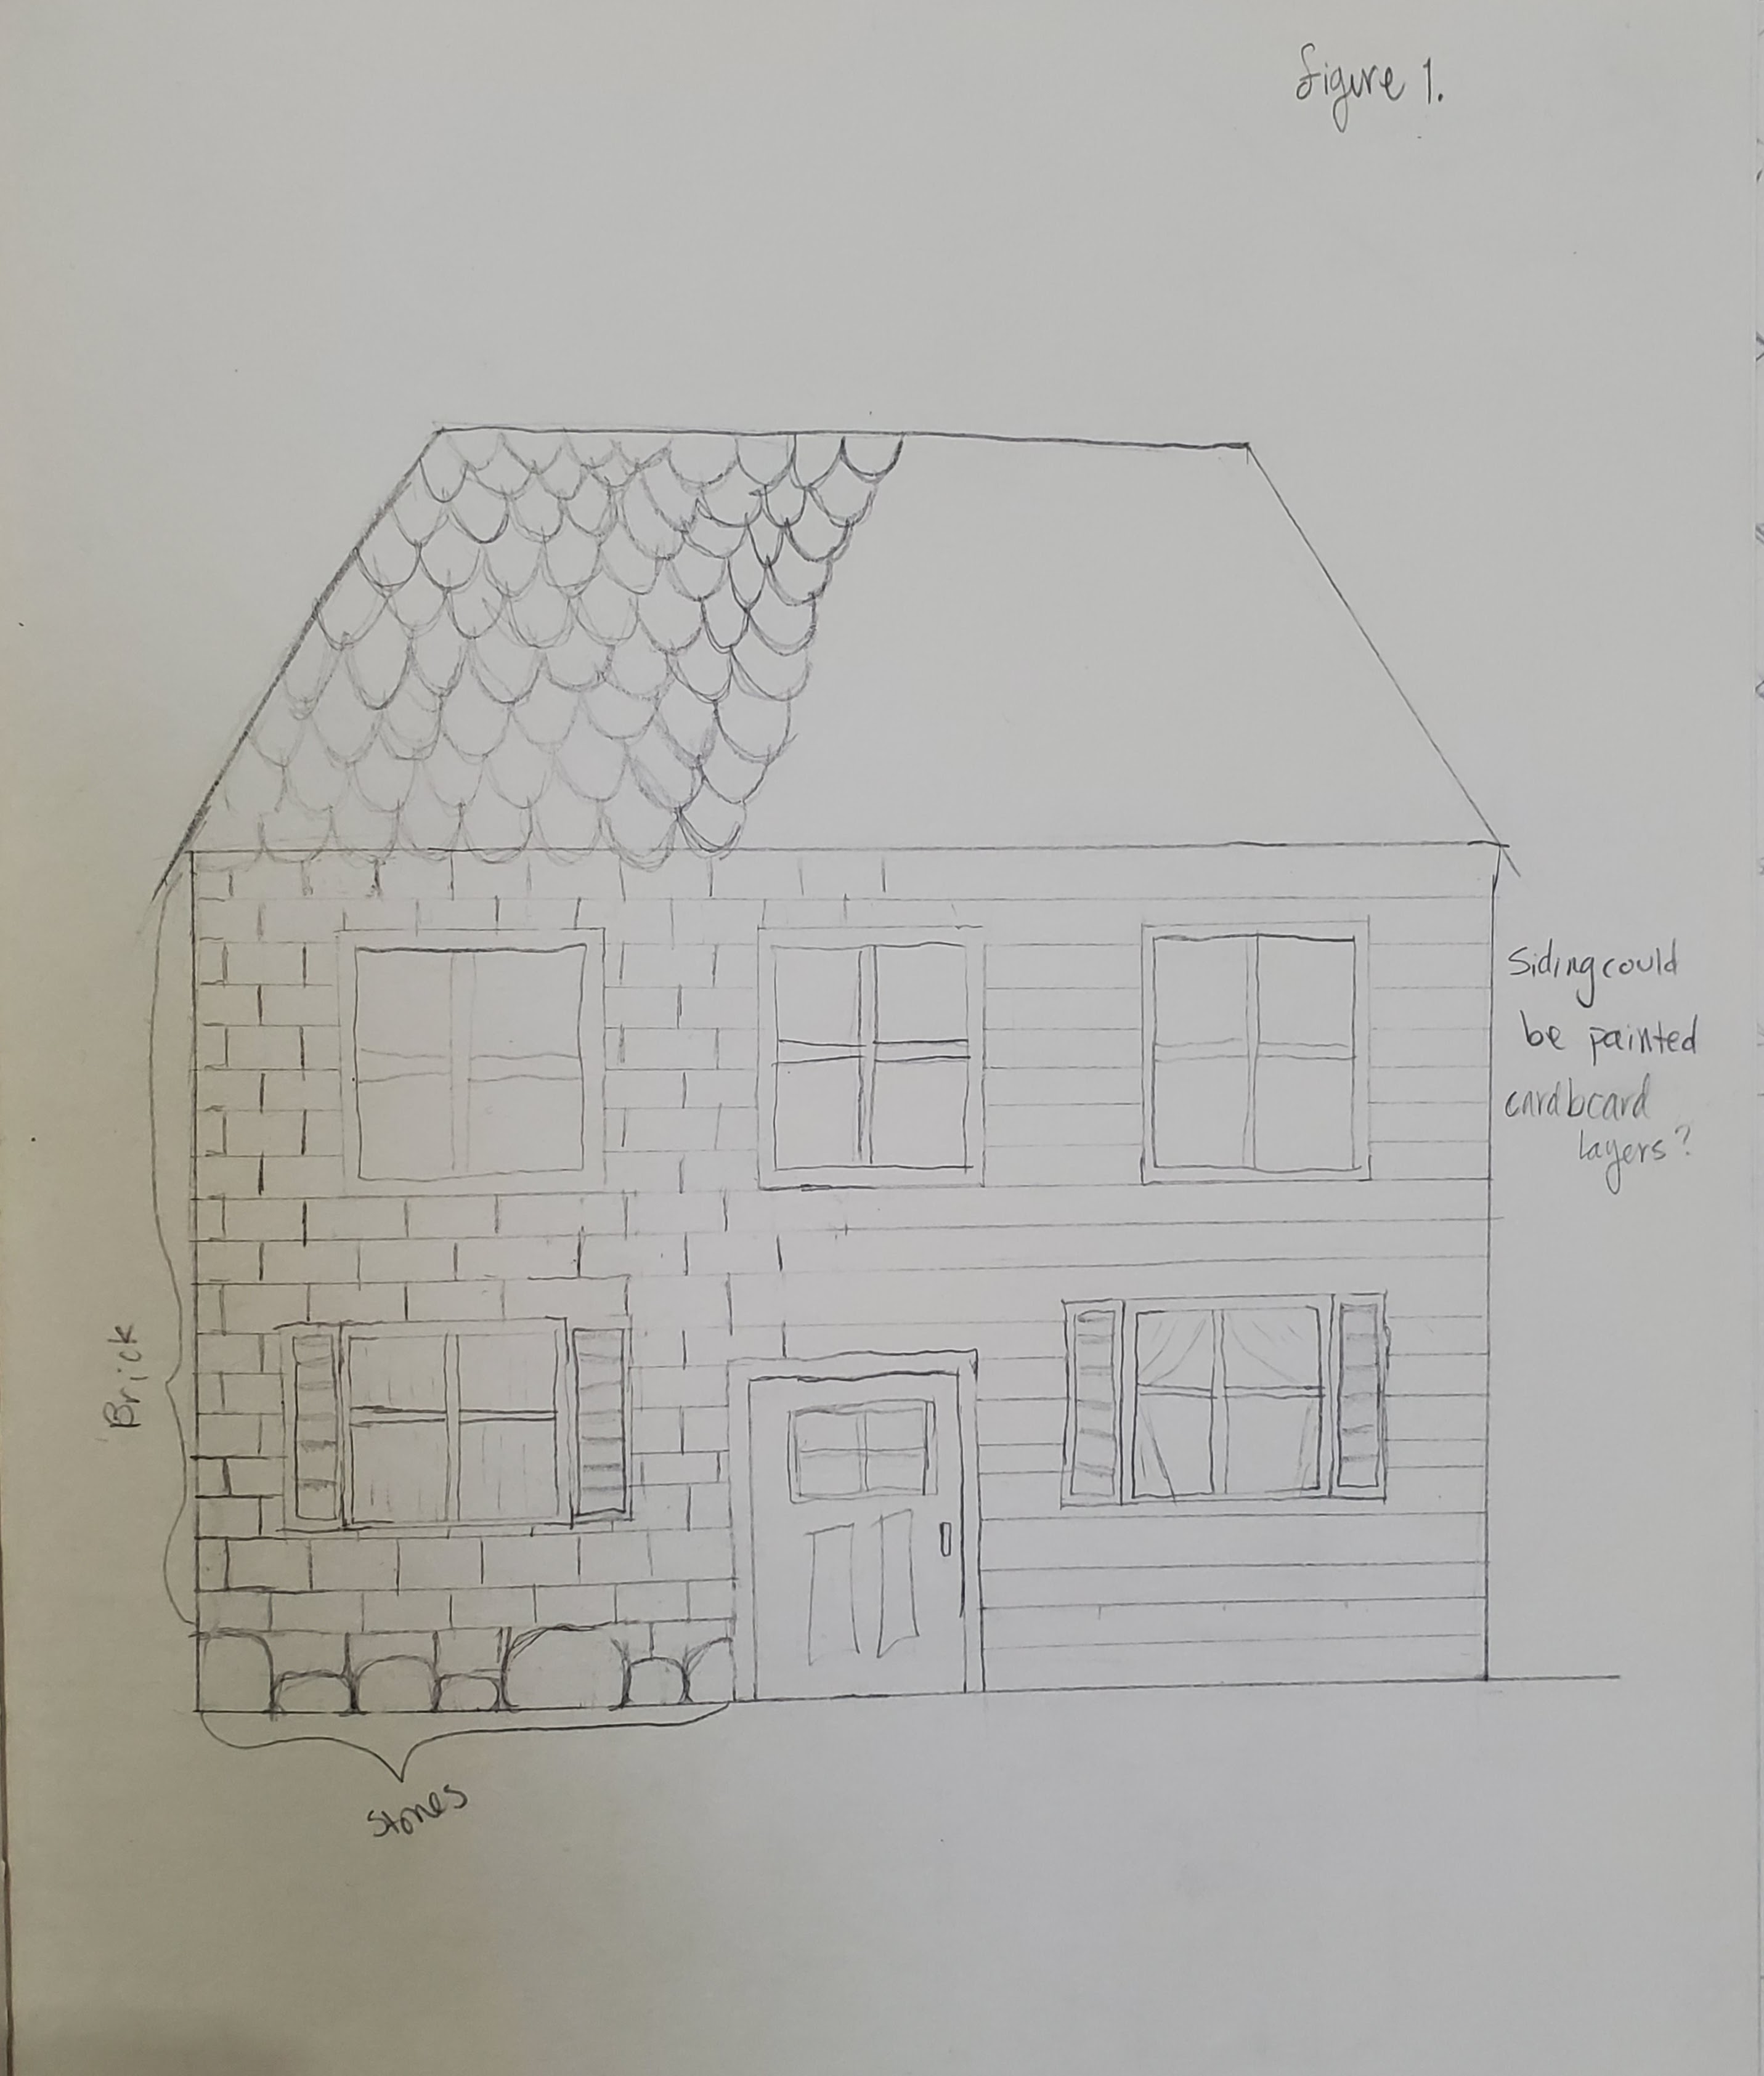 figure 1.
Siding could
be painted
cardboard
layers?
Brick
Stones